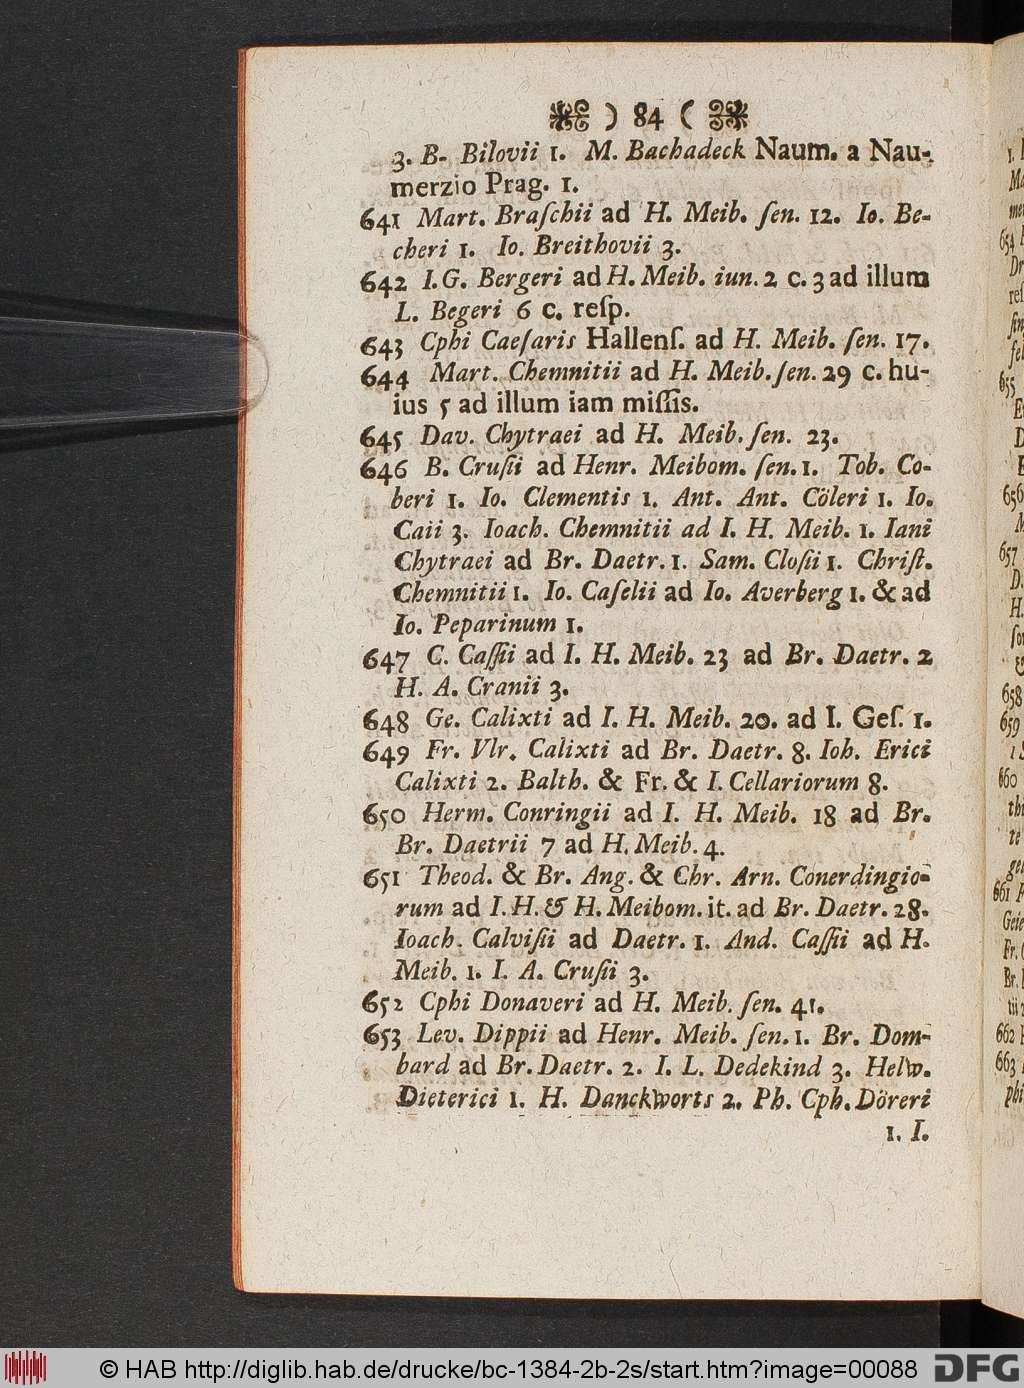 ) 84 (
3. B. Bilovii 1. M. Bachadeck Naum. a Nau-
merzio Prag. 1.
641 Mart. Braſchii ad H. Meib. ſen. 12. Io. Be-
cheri 1. Io. Breithovii 3.
642 I. G. Bergeri ad H. Meib. iun. 2 c. 3 ad illum
L. Begeri 6 c. reſp.
643 Cphi Caeſaris Hallenſ. ad H. Meib. ſen. 17.
644 Mart. Chemnitii ad H. Meib. ſen. 29 c. hu-
ius 5 ad illum iam miſſis.
645 Dav. Chytraei ad H. Meib. ſen. 23.
646 B. Cruſii ad Henr. Meibom. ſen. 1. Tob. Co-
beri 1. Io. Clementis 1. Ant. Ant. Cöleri 1. Io.
Caii 3. Ioach. Chemnitii ad I. H. Meib. 1. Iani
Chytraei ad Br. Daetr. 1. Sam. Cloſii 1. Chriſt.
Chemnitii 1. Io. Caſelii ad Io. Averberg 1. & ad
Io. Peparinum 1.
647 C. Caſſii ad I. H. Meib. 23 ad Br. Daetr. 2
H. A. Cranii 3.
648 Ge. Calixti ad I. H. Meib. 20. ad I. Geſ. 1.
649 Fr. Vlr. Calixti ad Br. Daetr. 8. Ioh. Erici
Calixti 2. Balth. & Fr. & I. Cellariorum 8.
650 Herm. Conringii ad I. H. Meib. 18 ad Br.
Br. Daetrii 7 ad H. Meib. 4.
651 Theod. & Br. Ang. & Chr. Arn. Conerdingio-
rum ad I. H. & H. Meibom. it. ad Br. Daetr. 28.
Ioach. Calviſii ad Daetr. 1. And. Caſſii ad H.
Meib. 1. I. A. Cruſii 3.
652 Cphi Donaveri ad H. Meib. ſen. 41.
653 Lev. Dippii ad Henr. Meib. ſen. 1. Br. Dom-
bard ad Br. Daetr. 2. I. L. Dedekind 3. Helw.
Dieterici 1. H. Danckworts 2. Ph. Cph. Döreri
1. I.
654
655
656
657
658
659
660
661
662
663
© HAB http://diglib.hab.de/drucke/bc-1384-2b-2s/start.htm?image=00088
DFG